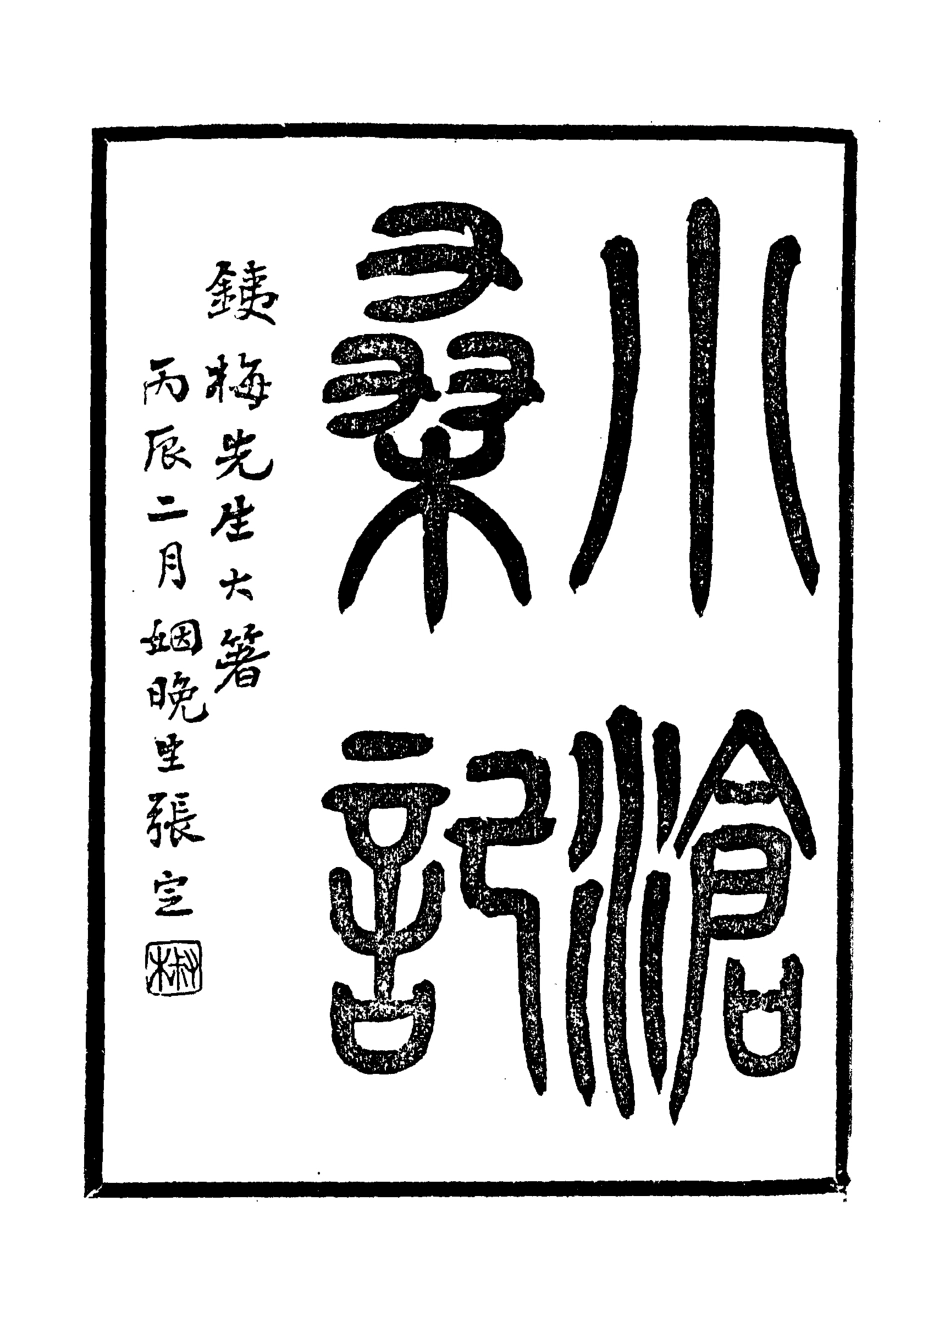 小滄
桑記
銕梅先生大箸
丙辰二月姻晚生張定